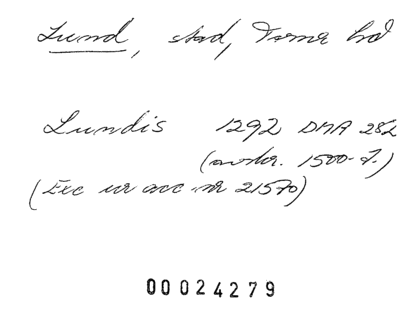 Lund, stad, Torna hd
Lundis 1292 DMA 282
(avskr. 1500-t.)
(Exc ur acc nr 21570)
00024279